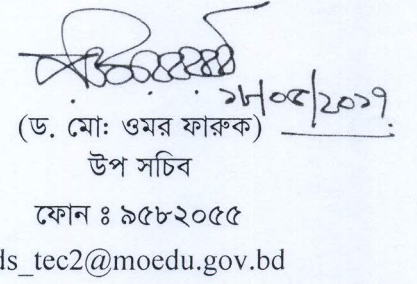 ১৮/০৫/২০১৭
(ড. মোঃ ওমর ফারুক)
উপ সচিব
ফোন ঃ ৯৫৮২০৫৫
ds_tec2@moedu.gov.bd